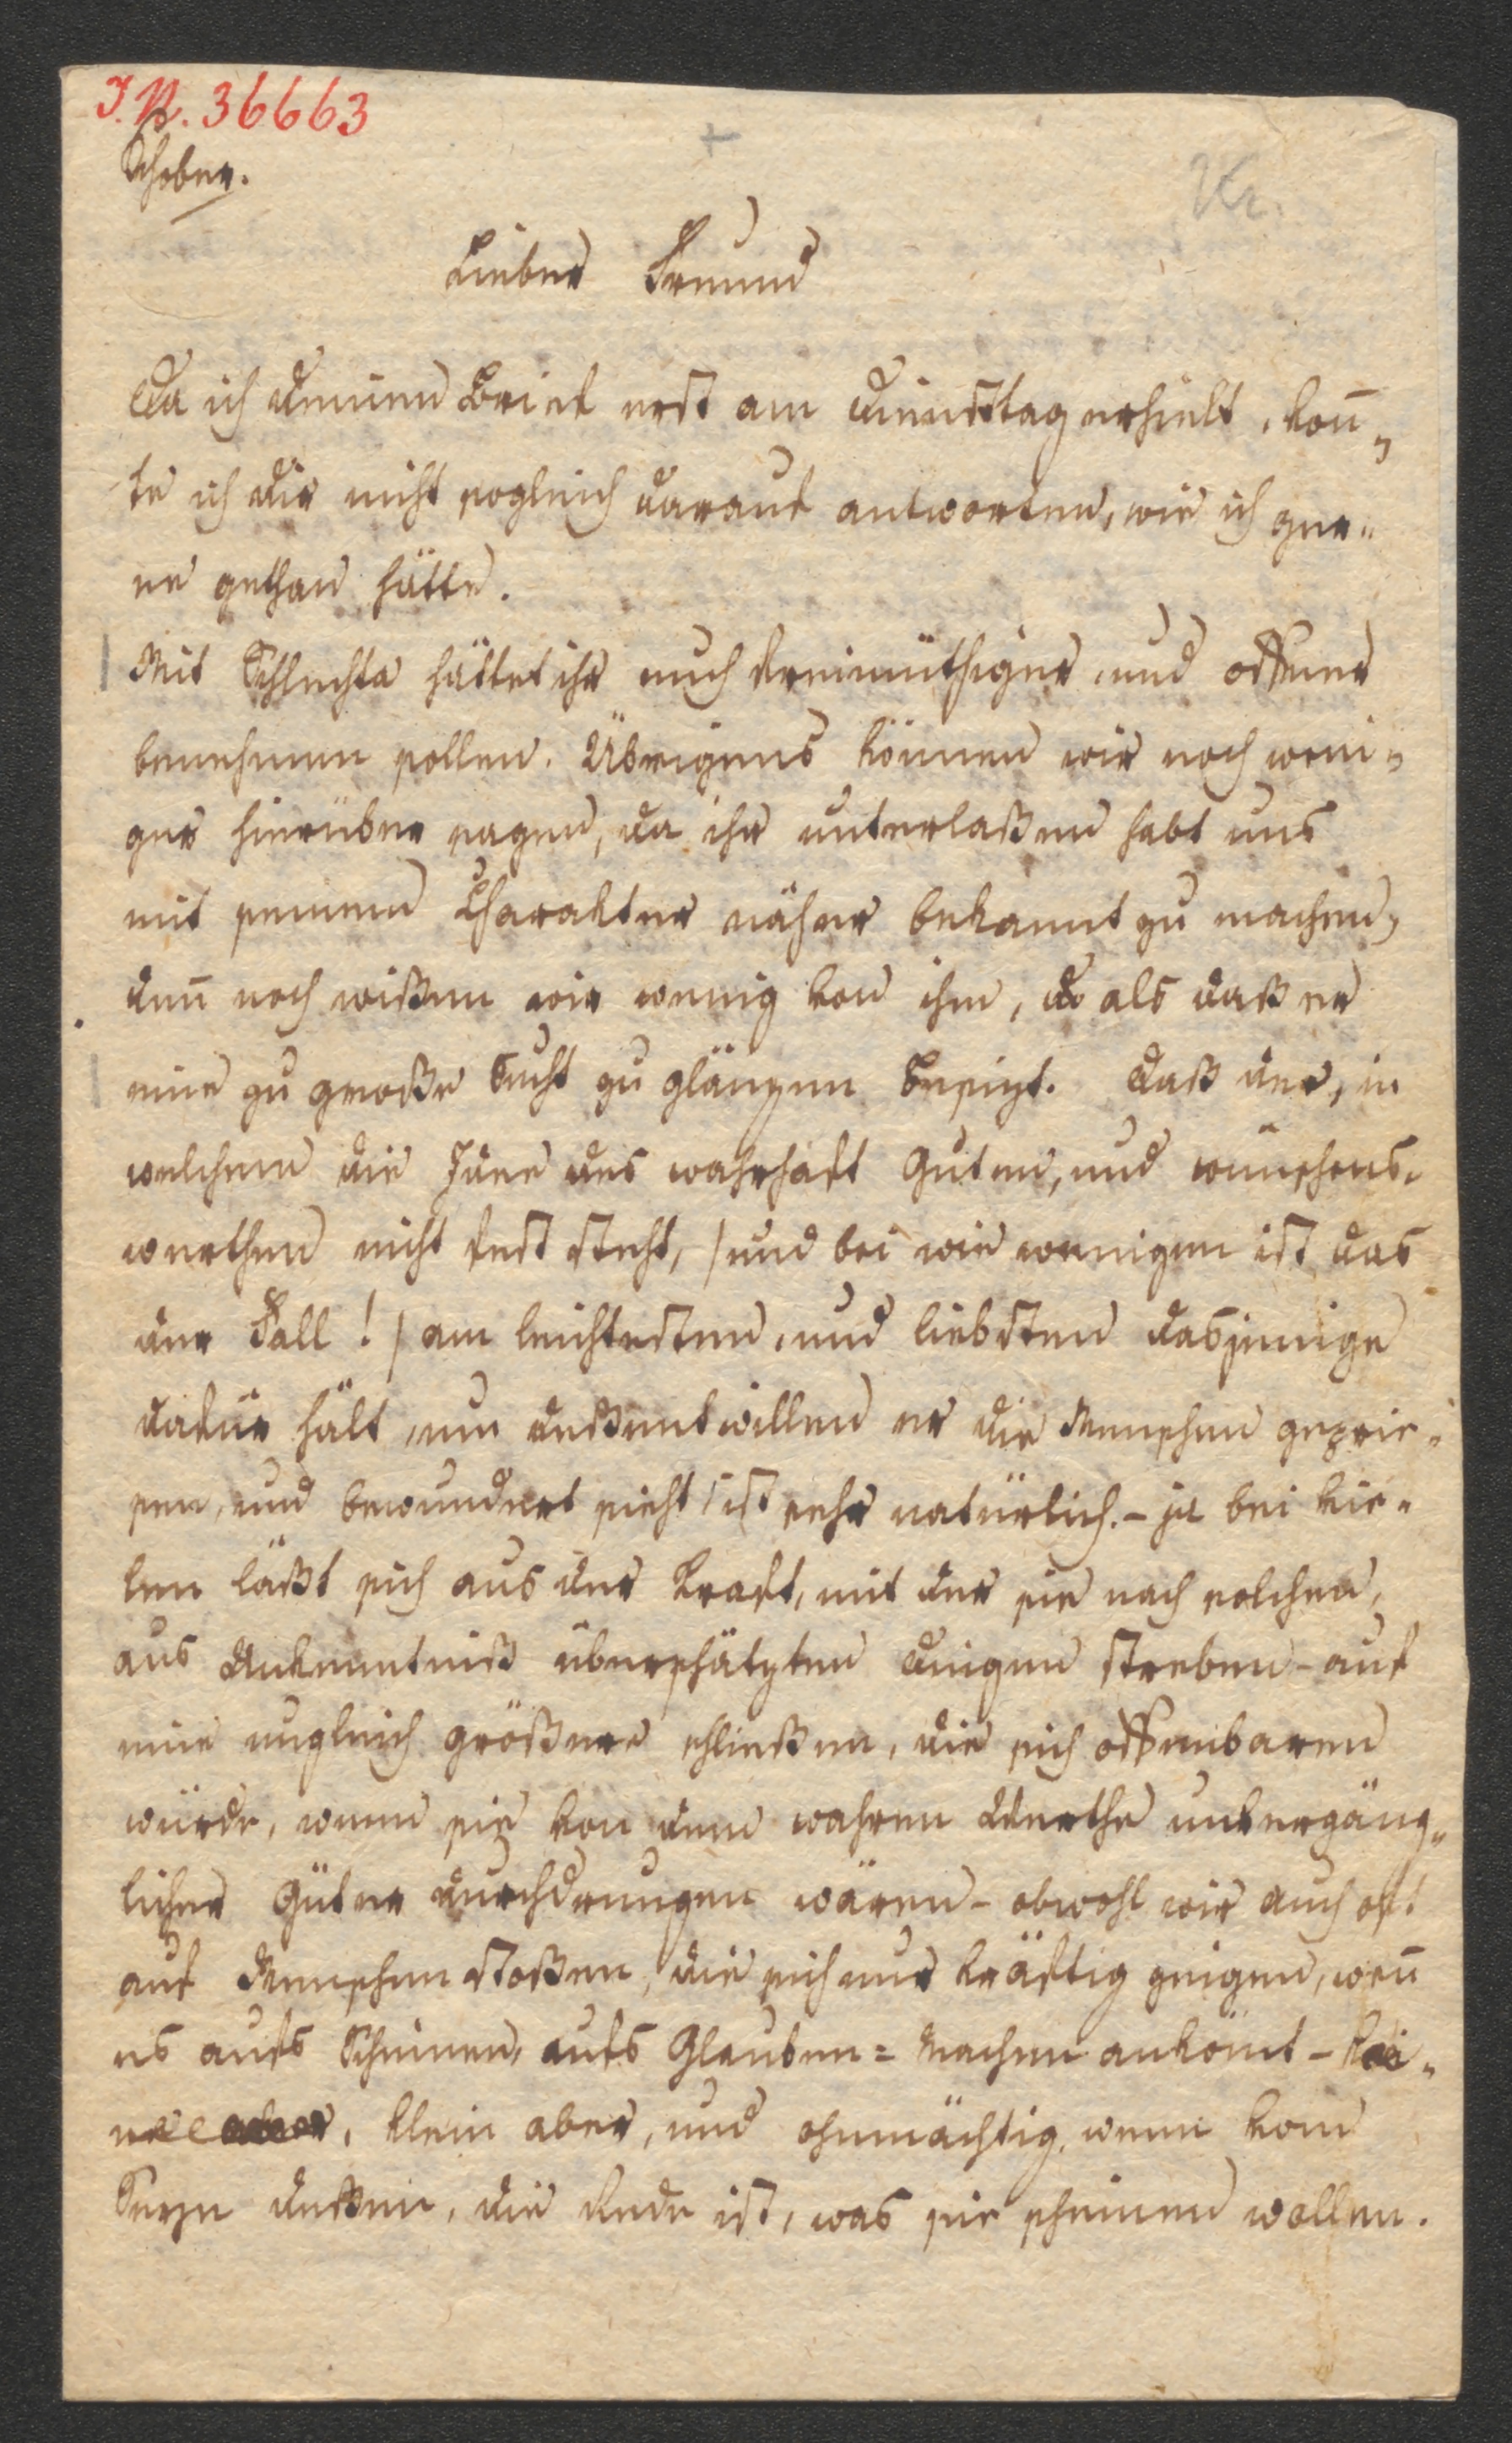 I.N. 36663
Schober.
Kr.
Lieber Freund
Da ich deinen Brief erst am Dienstag erhielt, koñ„
te ich dir nicht sogleich darauf antworten, wie ich ger„
ne gethan hätte.
Mit Schlechta hättet ihr euch freimüthiger, und offener
benehmen sollen. Übrigens können wir noch weni„
ger hierüber sagen, da ihr unterlaßen habt uns
mit seinem Charakter näher bekannt zu machen,
deñ noch wißen wir wenig von ihm, als daß er
eine zu große Sucht zu glänzen besizt. Daß der, in
welchem die Idee des wahrhaft Guten, und wünschens„
werthen nicht fest steht, /und bei wie wenigen ist das
der Fall!/ am leichtesten, und liebsten dasjenige
dafür hält, um deßentwillen er die Menschen geprie„
sen, und bewundert sieht, ist sehr natürlich. – ja bei vie„
len läßt sich aus der Kraft, mit der sie nach solchen,
aus Unkenntniß überschätzten Dingen streben – auf
eine ungleich größere schließen, die sich offenbaren
würde, wenn sie von dem wahren Werthe unvergäng„
licher Güter durchdrungen wären – obwohl wir auch oft
auf Menschen stoßen, die sich nur kräftig zeigen, weñ
es aufs Scheinen, aufs Glauben = Machen ankömt –
klein aber, und ohnmächtig, wenn vom
Seyn deßen, die Rede ist, was sie scheinen wollen.